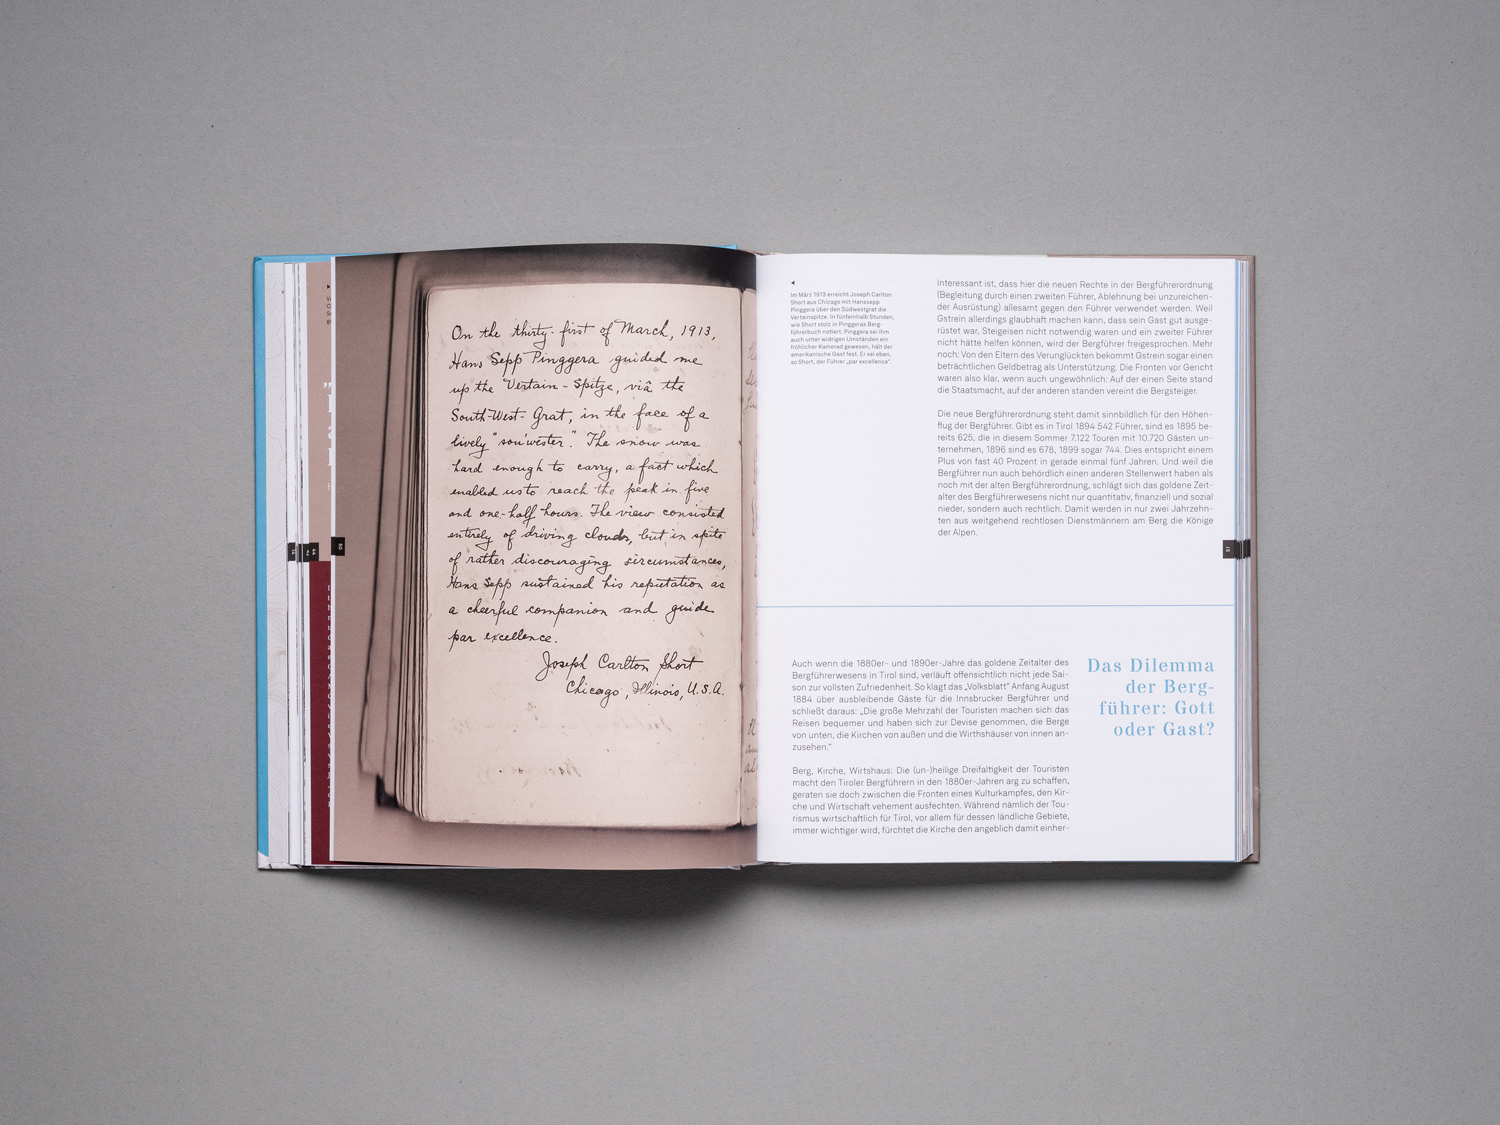 On the thirty-first of March, 1913,
Hans Sepp Pinggera guided me
up the Vertain-Spitze, viâ the
South-West-Grat, in the face of a
lively "sou'wester." The snow was
hard enough to carry, a fact which
enabled us to reach the peak in five
and one-half hours. The view consisted
entirely of driving clouds, but in spite
of rather discouraging circumstances,
Hans Sepp sustained his reputation as
a cheerful companion and guide
par excellence.
Joseph Carlton Short
Chicago, Illinois, U.S.A.
50
Im März 1913 erreicht Joseph Carlton
Short aus Chicago mit Hanssepp
Pinggera über den Südwestgrat die
Vertainspitze. In fünfeinhalb Stunden,
wie Short stolz in Pinggeras Berg-
führerbuch notiert. Pinggera sei ihm
auch unter widrigen Umständen ein
fröhlicher Kamerad gewesen, hält der
amerikanische Gast fest. Er sei eben,
so Short, der Führer „par excellence".
Interessant ist, dass hier die neuen Rechte in der Bergführerordnung
(Begleitung durch einen zweiten Führer, Ablehnung bei unzureichen-
der Ausrüstung) allesamt gegen den Führer verwendet werden. Weil
Gstrein allerdings glaubhaft machen kann, dass sein Gast gut ausge-
rüstet war, Steigeisen nicht notwendig waren und ein zweiter Führer
nicht hätte helfen können, wird der Bergführer freigesprochen. Mehr
noch: Von den Eltern des Verunglückten bekommt Gstrein sogar einen
beträchtlichen Geldbetrag als Unterstützung. Die Fronten vor Gericht
waren also klar, wenn auch ungewöhnlich: Auf der einen Seite stand
die Staatsmacht, auf der anderen standen vereint die Bergsteiger.
Die neue Bergführerordnung steht damit sinnbildlich für den Höhen-
flug der Bergführer. Gibt es in Tirol 1894 542 Führer, sind es 1895 be-
reits 625, die in diesem Sommer 7.122 Touren mit 10.720 Gästen un-
ternehmen, 1896 sind es 678, 1899 sogar 744. Dies entspricht einem
Plus von fast 40 Prozent in gerade einmal fünf Jahren. Und weil die
Bergführer nun auch behördlich einen anderen Stellenwert haben als
noch mit der alten Bergführerordnung, schlägt sich das goldene Zeit-
alter des Bergführerwesens nicht nur quantitativ, finanziell und sozial
nieder, sondern auch rechtlich. Damit werden in nur zwei Jahrzehn-
ten aus weitgehend rechtlosen Dienstmännern am Berg die Könige
der Alpen.
51
Auch wenn die 1880er- und 1890er-Jahre das goldene Zeitalter des
Bergführerwesens in Tirol sind, verläuft offensichtlich nicht jede Sai-
son zur vollsten Zufriedenheit. So klagt das „Volksblatt" Anfang August
1884 über ausbleibende Gäste für die Innsbrucker Bergführer und
schließt daraus: „Die große Mehrzahl der Touristen machen sich das
Reisen bequemer und haben sich zur Devise genommen, die Berge
von unten, die Kirchen von außen und die Wirthshäuser von innen an-
zusehen."
Berg, Kirche, Wirtshaus: Die (un-)heilige Dreifaltigkeit der Touristen
macht den Tiroler Bergführern in den 1880er-Jahren arg zu schaffen,
geraten sie doch zwischen die Fronten eines Kulturkampfes, den Kir-
che und Wirtschaft vehement ausfechten. Während nämlich der Tou-
rismus wirtschaftlich für Tirol, vor allem für dessen ländliche Gebiete,
immer wichtiger wird, fürchtet die Kirche den angeblich damit einher-
Das Dilemma
der Berg-
führer: Gott
oder Gast?